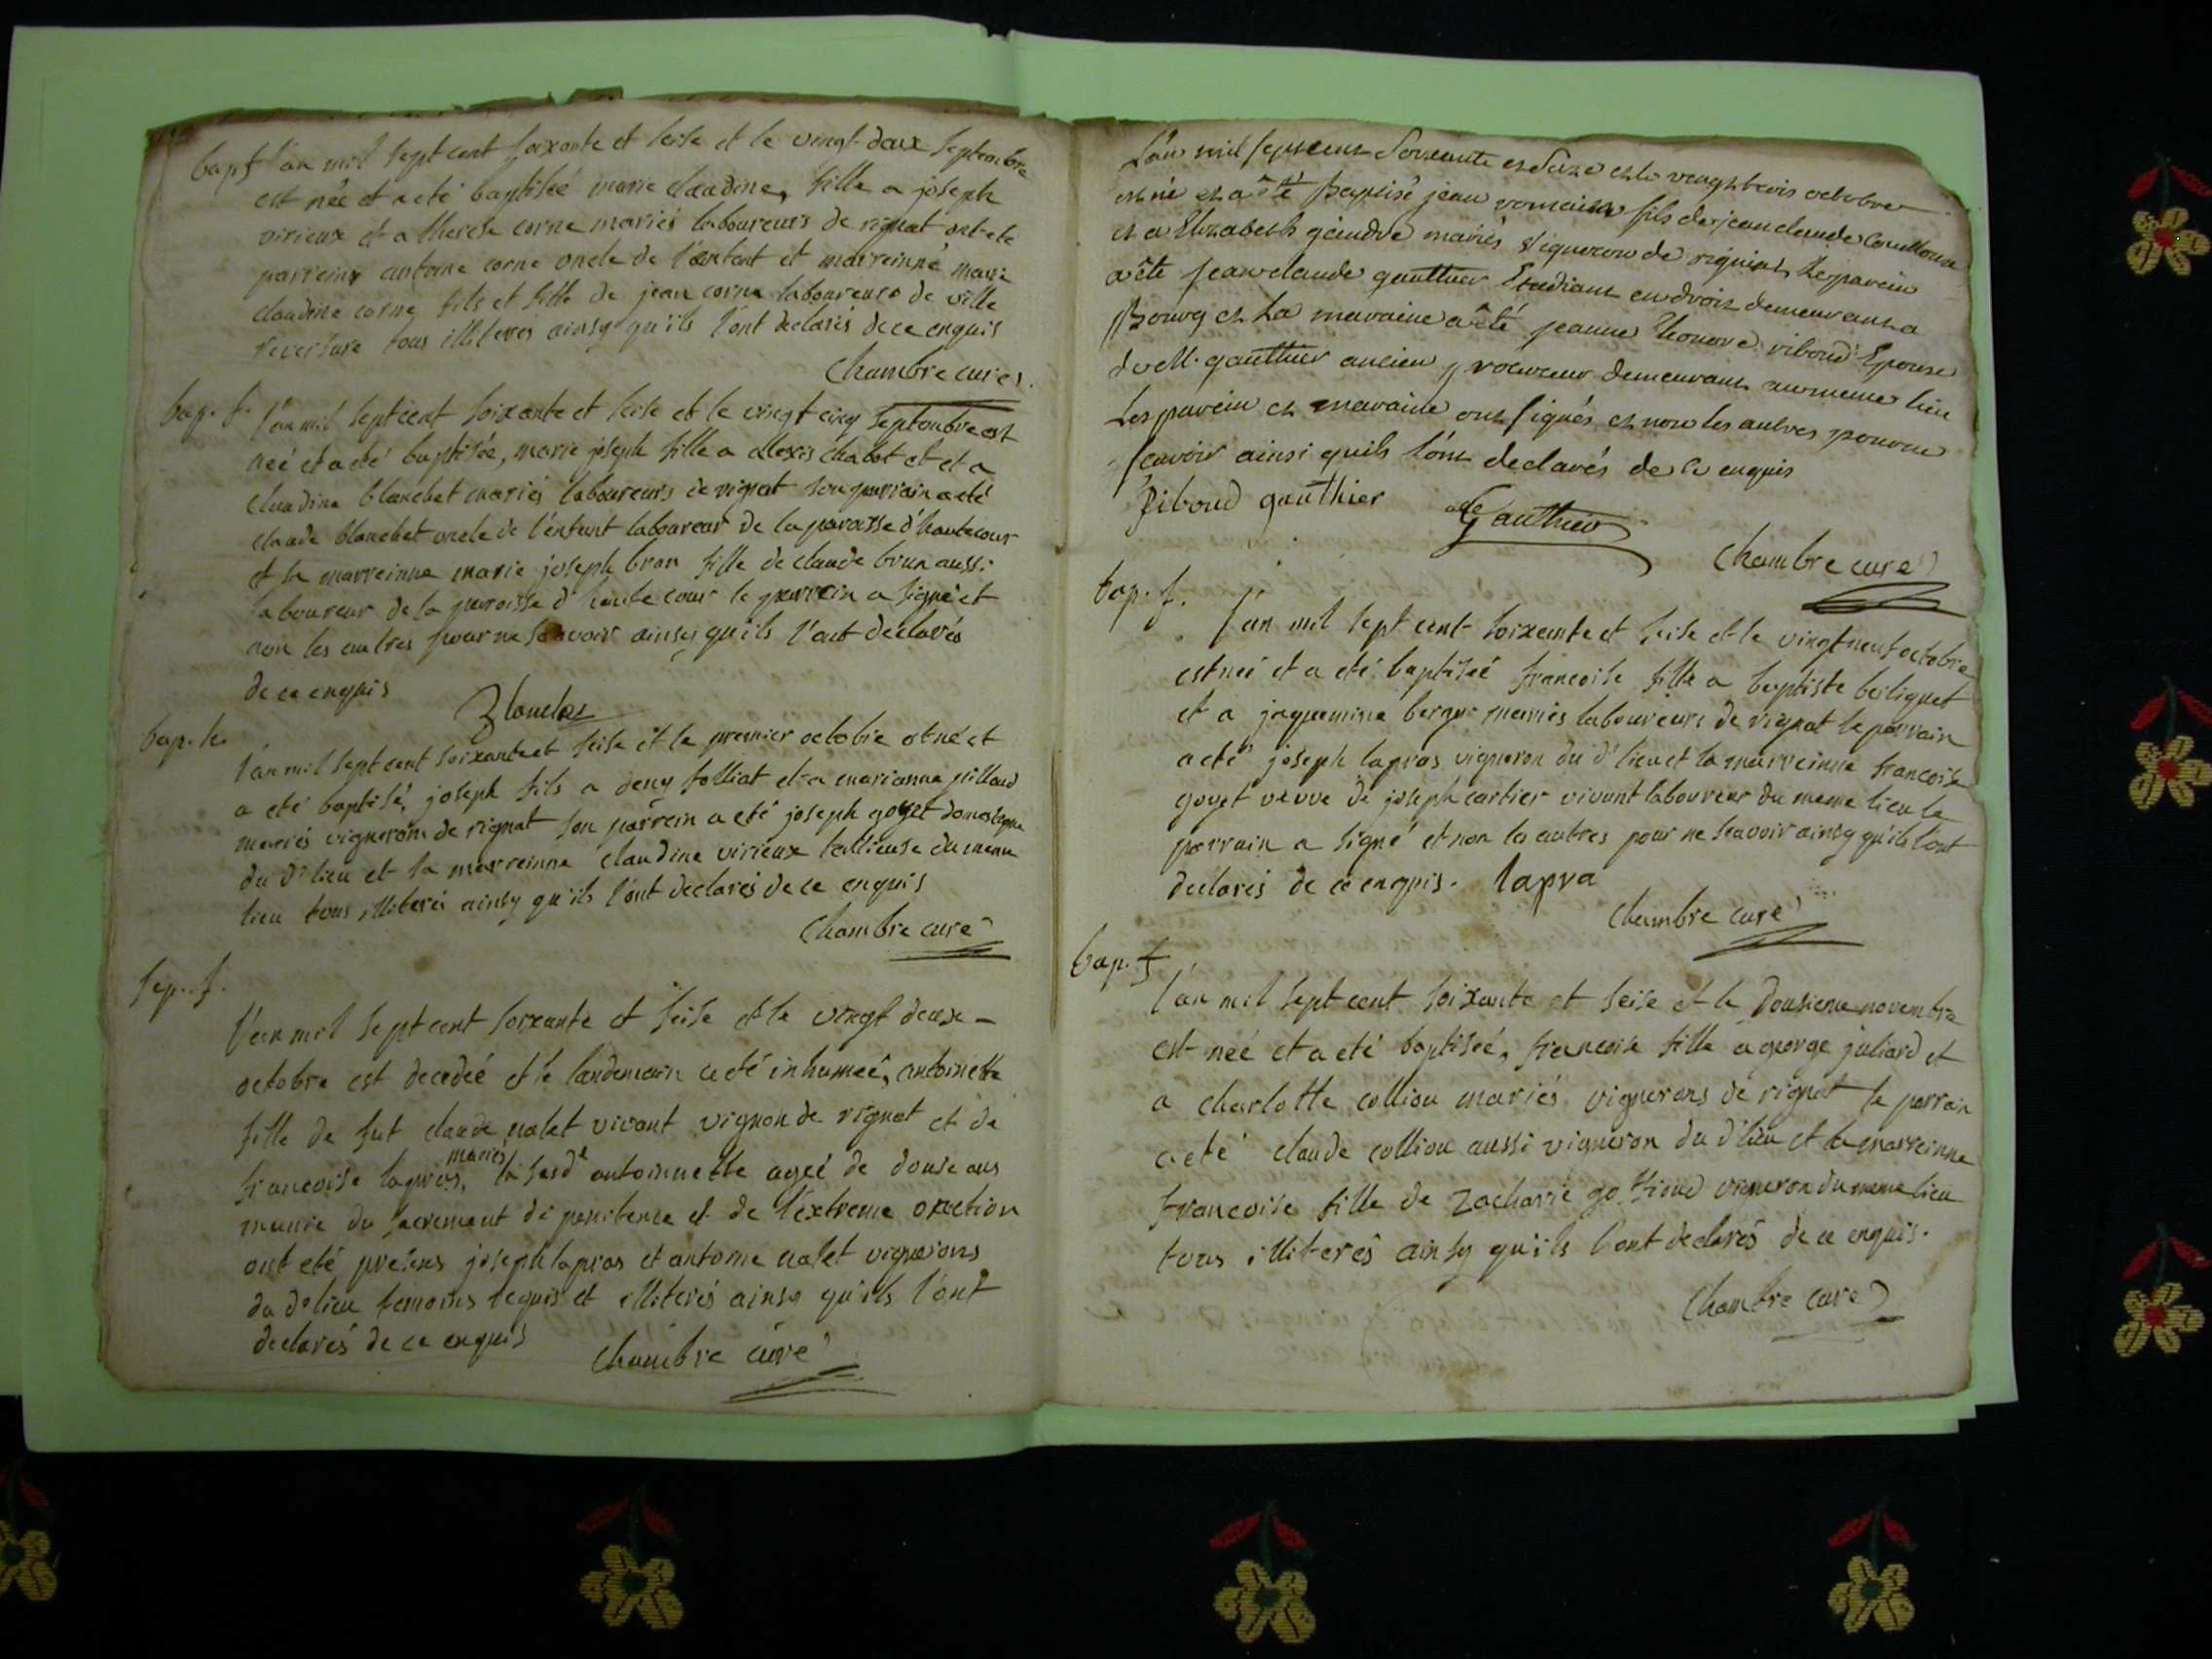 bap f l'an mil sept cent soixante et seise et le vingt deux septembre
est née et a eté baptiseé marie claudine, fille a joseph
virieux et a therese corne mariés laboureurs de rignat ont ete
parreins antoine corne oncle de l'enfant et marreinne marie
claudine corne fils et fille de jean corne laboureurs de ville
reversure tous illiterés ainsy qu'ils l'ont declarés de ce enquis
Chambre curé
bap. f. l'an mil sept cent soixante et seise et le vingt cinq septembre est
neé et a eté baptisée, marie joseph fille a alexis chabot et et a
claudine blanchet mariés laboureurs de rignat son parrain a eté
claude blanchet oncle de l'enfant laboureur de la paroisse d'hautecour
et la marreinne marie joseph brun fille de claude brun aussi
laboureur de la paroisse d'hautecour le parrein a signé et
non les autres pour ne sçavoir ainsy qu'ils l'ont declarés
de ce enquis
bap. h. l'an mil sept cent soixante et seise et le premier octobre est né et
a eté baptisé, joseph fils a deny folliat et a marianne pilland
mariés vignerons de rignat son parrein a eté joseph goyet domestique
du dt lieu et la marreinne claudine virieux tallieuse du meme
lieu tous illiterés ainsy qu'ils l'ont declarés de ce enquis
Chambre curé
sep. f.
l'an mil sept cent soixante et seise et le vingt deux -
octobre est decedeé et le landemain a eté inhumeé, antoinette
fille de fut claude nalet vivant vignon de rignat et de
francoise lapras, mariés la susde antoinnette ageé de douse ans
munie du sacrement de penitence et de l'extreme onction
ont eté presens joseph lapras et antoine nalet vignerons
du dt lieu temoins requis et illiterés ainsy qu'ils l'ont
declarés de ce enquis
Chambre curé
L'an mil sept cent Soixante et Seize et le vingt trois octobre
est né et a êté Baptisé jean romain fils de jean claude
et a Elizabeth gaindre mariés vigneron de rignat, Le parein
a êté jean claude gauthier Etudiant en droit demeurant a
Bourg et La maraine a êté jeanne honoré riboud Epouse
de M. gauthier ancien procureur demeurant au meme lieu
Les parein et maraine ont signés et non les autres pour ne
scavoir ainsi quils l'ont declarés de ce enquis
Riboud gauthier
Gauthier
Chambre curé
bap. f. l'an mil sept cent soixante et seise et le vingt neuf octobre
est neé et a eté baptiseé francoise fille a baptiste berliquet
et a jaquemine berger mariés laboureurs de rignat le parrain
a eté joseph lapras vigneron du dt lieu et la marreinne francoise
goyet veuve de joseph cartier vivant laboureur du meme lieu le
parrain a signé et non les autres pour ne scavoir ainsy qu'ils l'ont
declarés de ce enquis. lapra
Chambre curé
bap. f
l'an mil sept cent soixante et seise et le dousieme novembre
est neé et a eté baptiseé, francoise fille a george juliard et
a charlotte colliou mariés vignerons de rignat le parrain
a eté claude colliou aussi vigneron du dt lieu et la marreinne
francoise fille de zacharie vigneron du meme lieu
tous illiterés ainsy qu'ils l'ont declarés de ce enquis.
Chambre curé